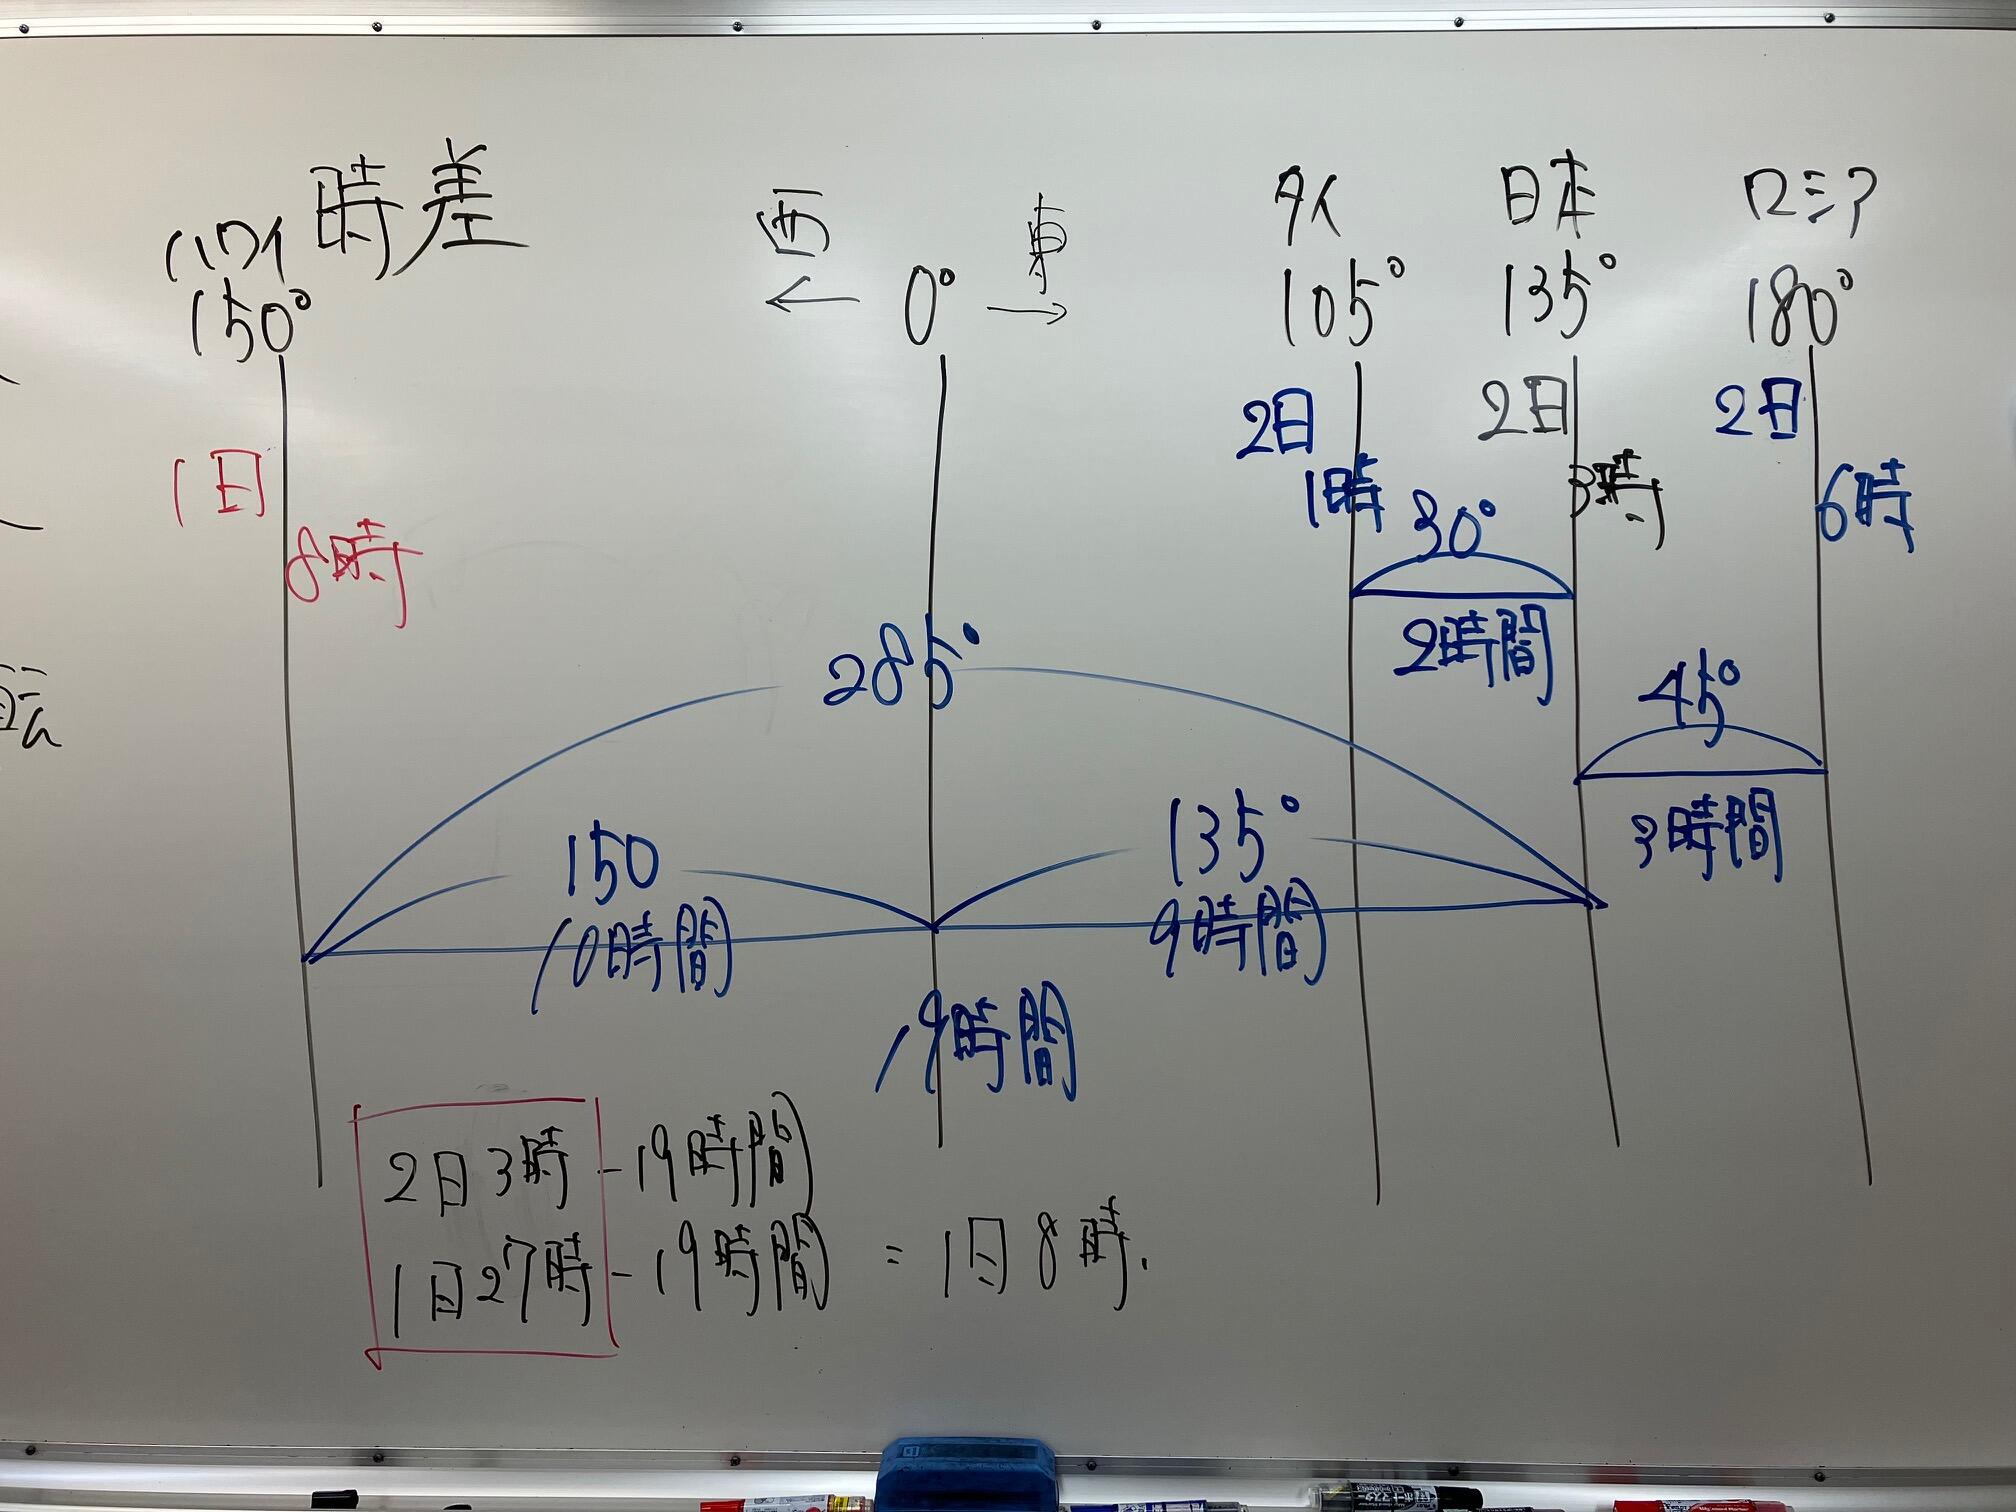 時差
ハワイ
150°
西
←
0°
東
→
タイ
105°
日本
135°
ロシア
180°
1日
8時
2日
1時
2日
3時
2日
6時
30°
2時間
45°
3時間
285°
150
10時間
135°
9時間
19時間
2日3時-19時間
1日27時-19時間 = 1日8時.